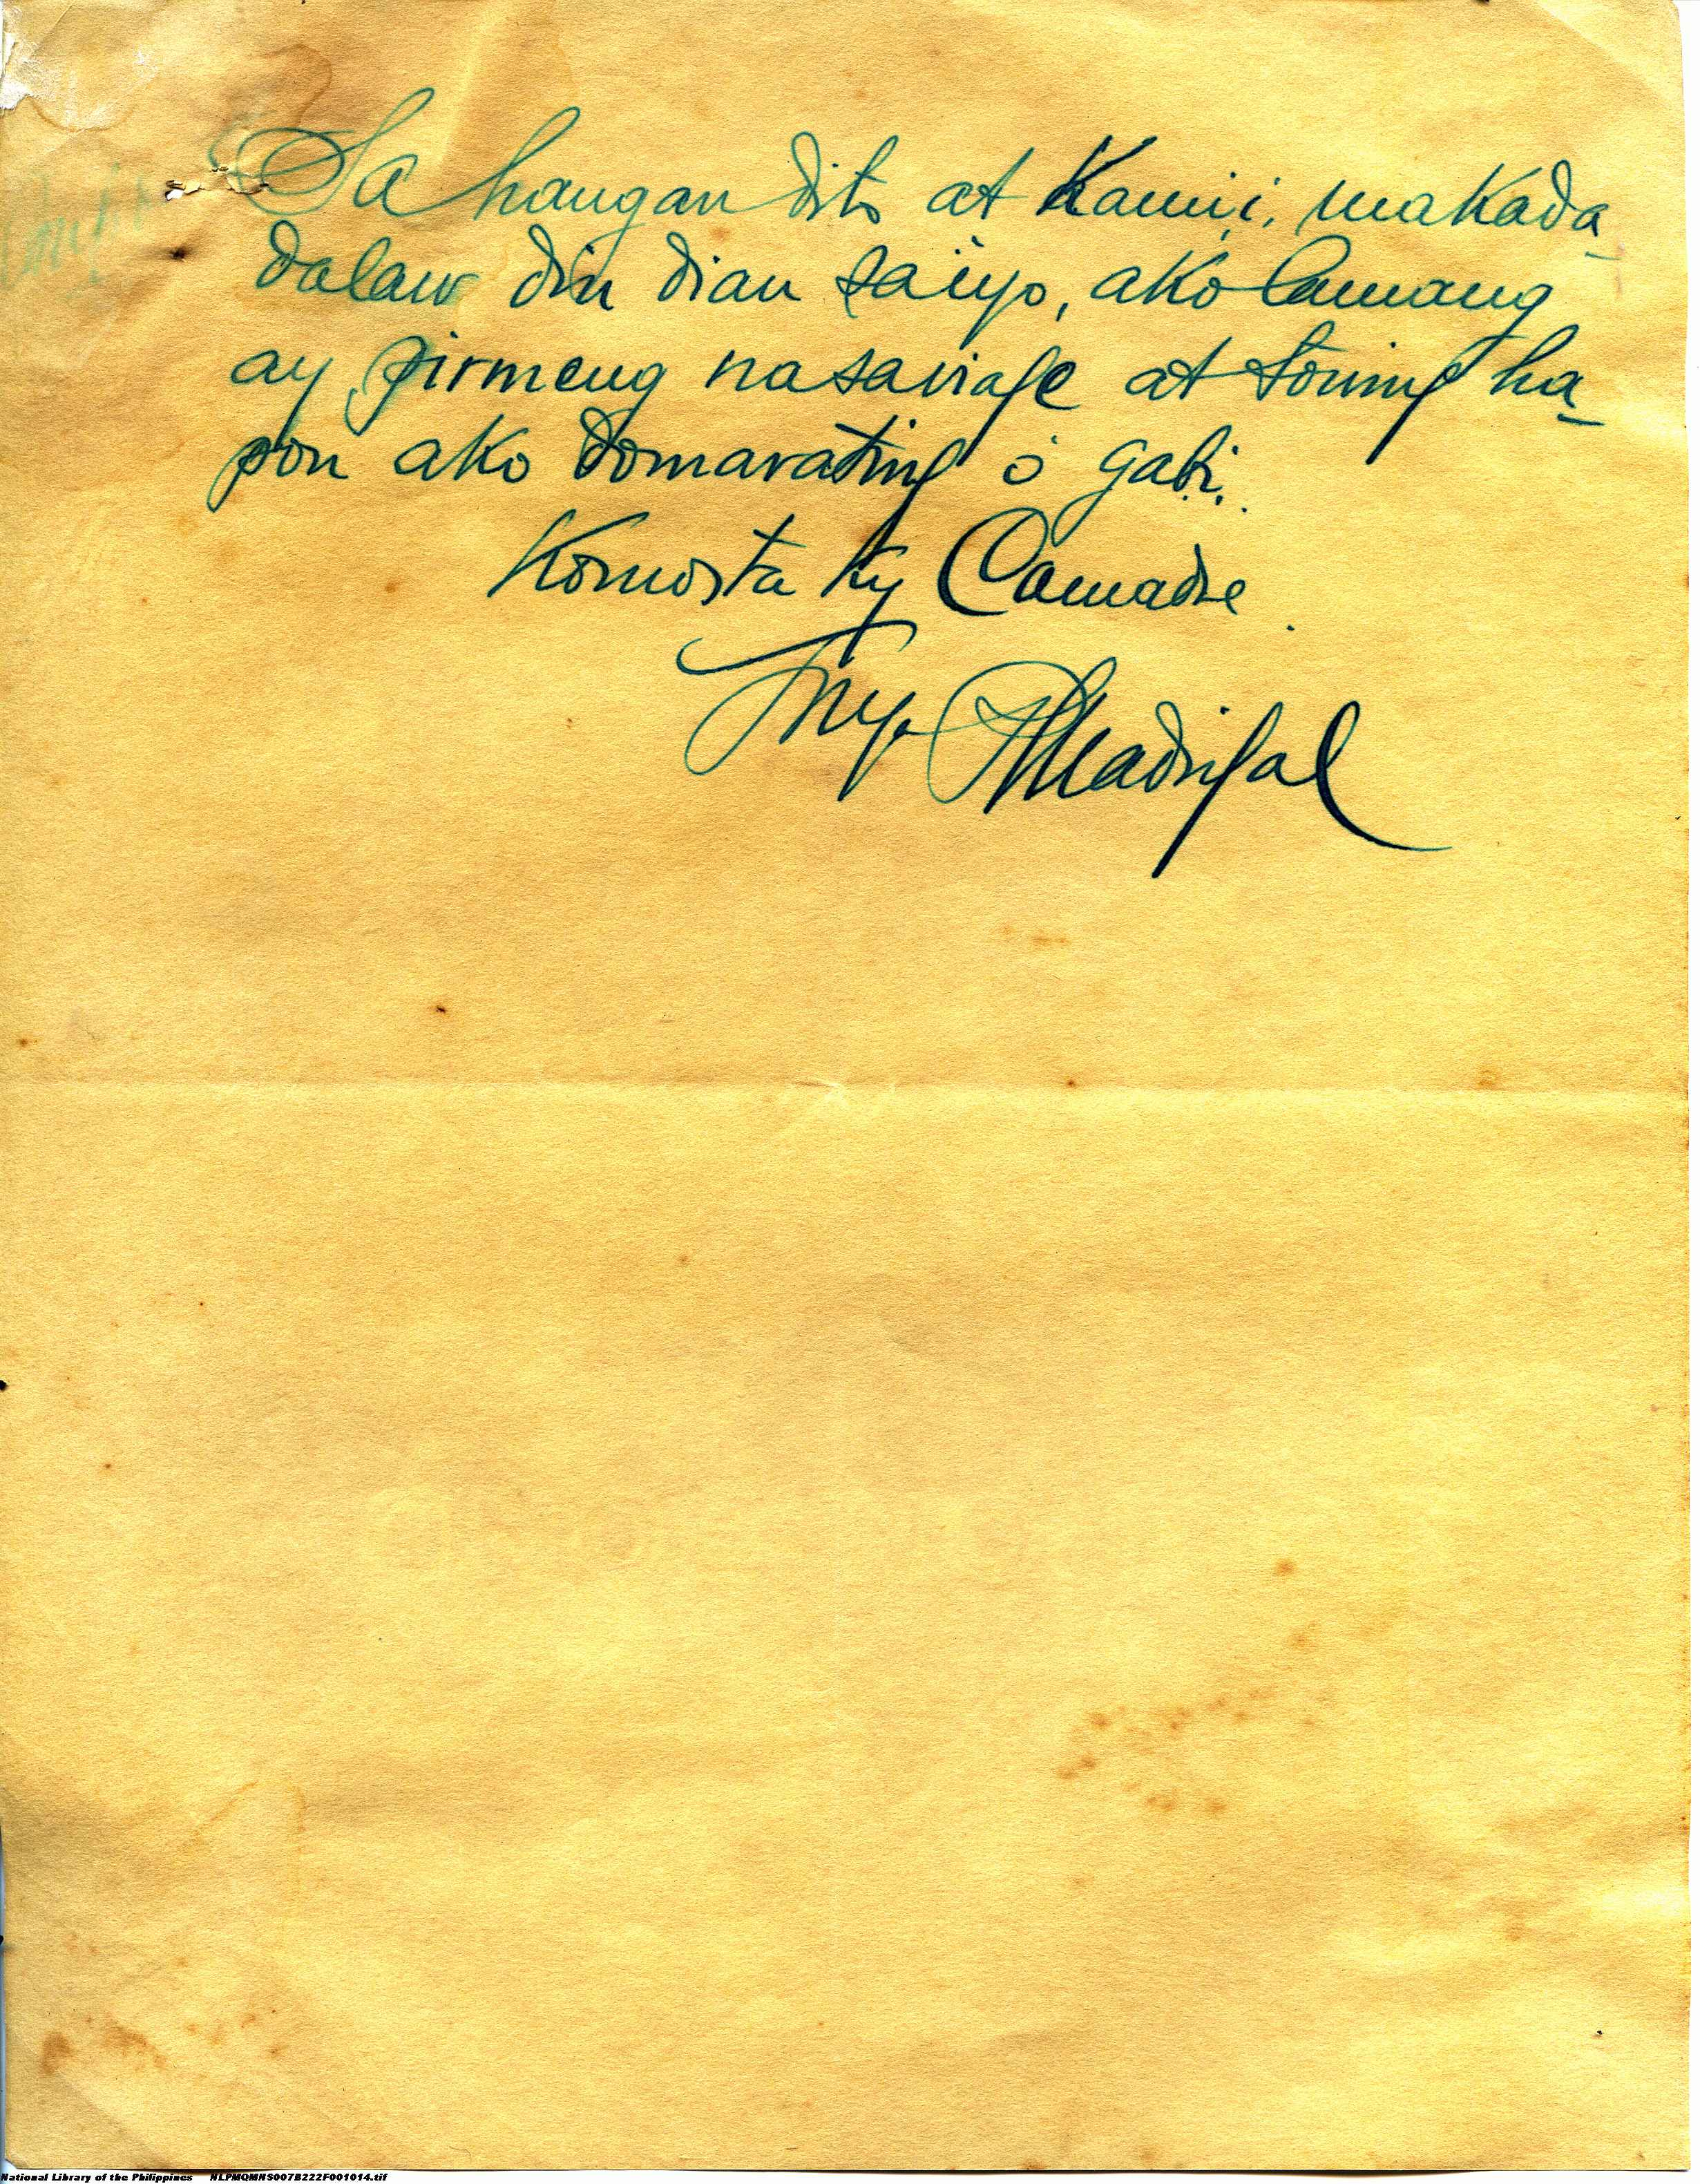 Sa hangan dito at Kami,i, makada-
dalaw din dian saiyo, ako lamang
ay pirmeng nasaviaje at touing ha-
pon ako domarating ó gabi.
Komosta Ky Comadre.
Madrigal
National Library of the Philippines NLPMQMNS007B222F001014.tif